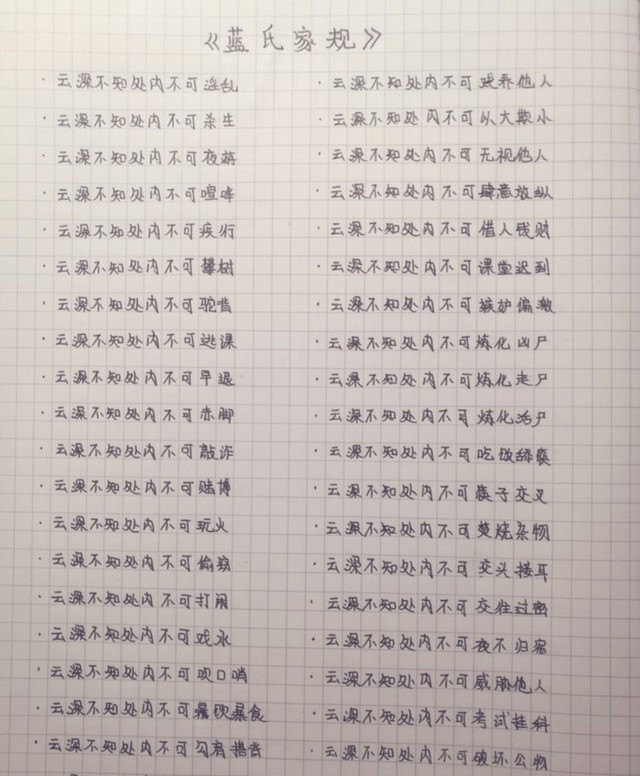 《蓝氏家规》
· 云深不知处内不可淫乱
· 云深不知处内不可杀生
· 云深不知处内不可夜游
· 云深不知处内不可喧哗
· 云深不知处内不可疾行
· 云深不知处内不可攀树
· 云深不知处内不可驼背
· 云深不知处内不可逃课
· 云深不知处内不可早退
· 云深不知处内不可赤脚
· 云深不知处内不可敲诈
· 云深不知处内不可赌博
· 云深不知处内不可玩火
· 云深不知处内不可偷窥
· 云深不知处内不可打闹
· 云深不知处内不可戏水
· 云深不知处内不可吹口哨
· 云深不知处内不可暴饮暴食
· 云深不知处内不可勾肩搭背
· 云深不知处内不可戏弄他人
· 云深不知处内不可以大欺小
· 云深不知处内不可无视他人
· 云深不知处内不可肆意放纵
· 云深不知处内不可借人钱财
· 云深不知处内不可课堂迟到
· 云深不知处内不可嫉妒偏激
· 云深不知处内不可炼化凶尸
· 云深不知处内不可炼化走尸
· 云深不知处内不可炼化活尸
· 云深不知处内不可吃饭舔筷
· 云深不知处内不可筷子交叉
· 云深不知处内不可焚烧杂物
· 云深不知处内不可交头接耳
· 云深不知处内不可交往过密
· 云深不知处内不可夜不归宿
· 云深不知处内不可威胁他人
· 云深不知处内不可考试挂科
· 云深不知处内不可破坏公物